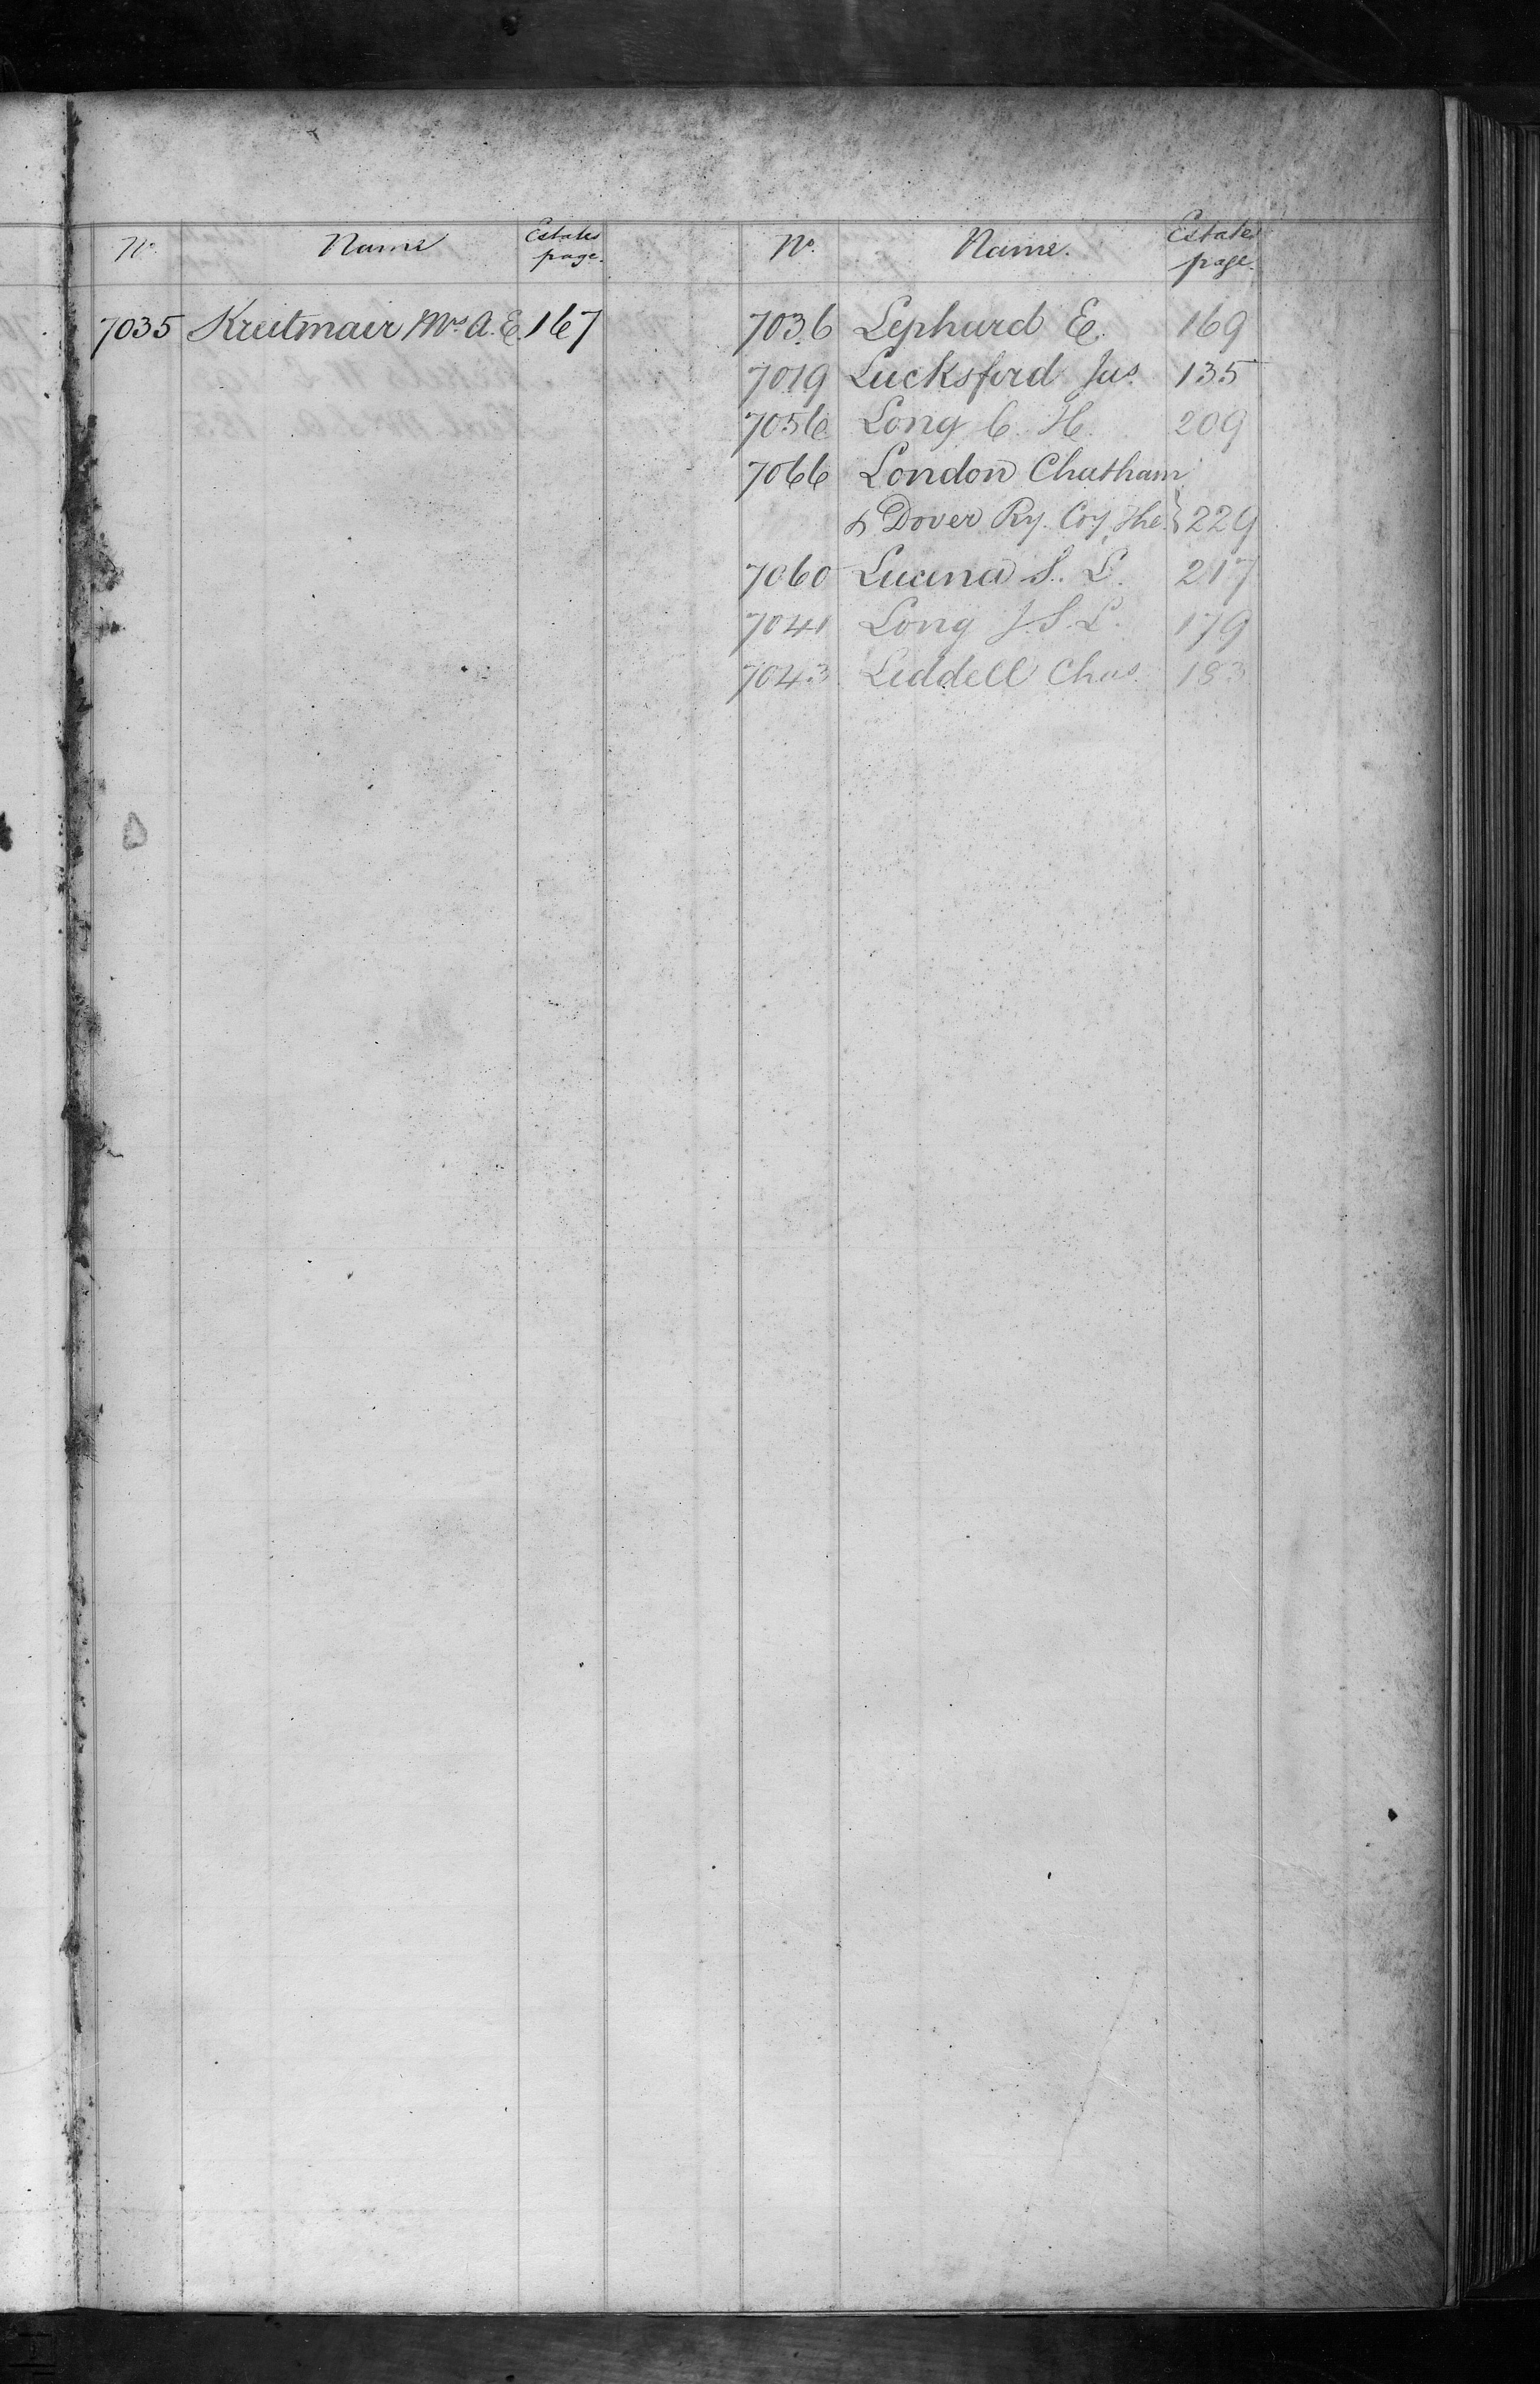 No. Name Estates page.
7035 Kreitmair Mrs A. E. 167
No. Name. Estates page.
7036 Lephard E. 169
7019 Lucksford Jas. 135
7056 Long C. H. 209
7066 London Chatham
& Dover Ry. Coy. The } 229
7060 Lucena S. L. 217
7041 Long J. S. L. 179
7043 Liddell Chas. 183